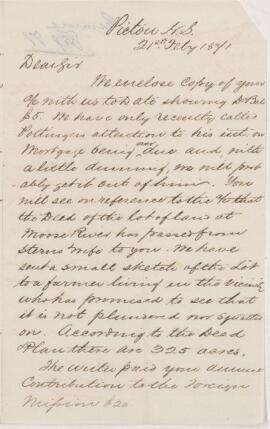 Pictou N.S.
21st Feby 1871
Dear Sir
We enclose Copy of your
a/c with us to Date showing Dr Bal
$5. We have only recently called
attention to his int. on
Mortgage being over due and, with
a little dunning, we will prob-
ably get it out of him. You
will see on reference to the a/c that
the Deed of the lot of land at
Moose River has passed from
Sterns & Wife to you. We have
sent a small sketch of the Lot
to a farmer living in the vicinity
who has promised to see that
it is not plundered nor squatted
on. According to the Deed
& Plan there are 325 acres.
The writer paid your annual
Contribution to the Foreign
Mission $20